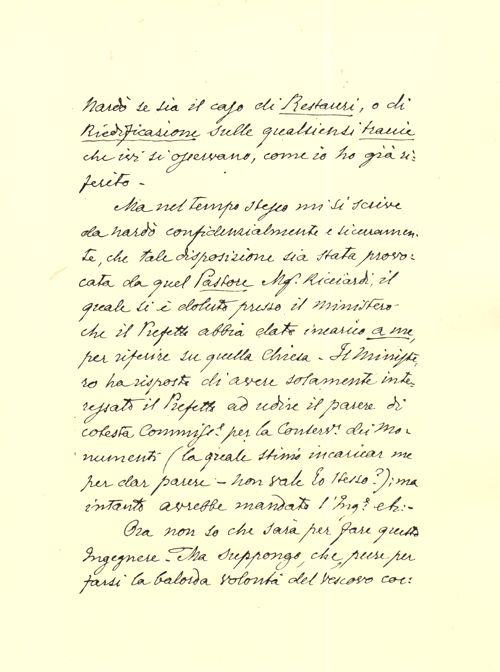 Nardò se sia il caso di Restauri, o di
Riedificazione sulle qualsiensi traccie
che ivi si osservano, come io ho già ri=
ferito -
Ma nel tempo stesso mi si scrive
da Nardò confidenzialmente e sicuramen=
te, che tale disposizione sia stata provo=
cata da quel Pastore Mgr. Ricciardi, il
quale si è doluto presso il Ministero
che il Prefetto abbia dato incarico a me,
per riferire su quella Chiesa - Il Ministe=
ro ha risposto di avere solamente inte=
ressato il Prefetto ad udire il parere di
cotesta Commise. per la Conserv. dei Mo=
numenti (la quale stimò incaricar me
per dar parere - non vale lo stesso?); ma
intanto avrebbe mandato l'Ing.e etc:-
Ora non so che sarà per fare questo
Ingegnere - Ma suppongo, che, pure per
farsi la balorda volontà del vescovo coc=